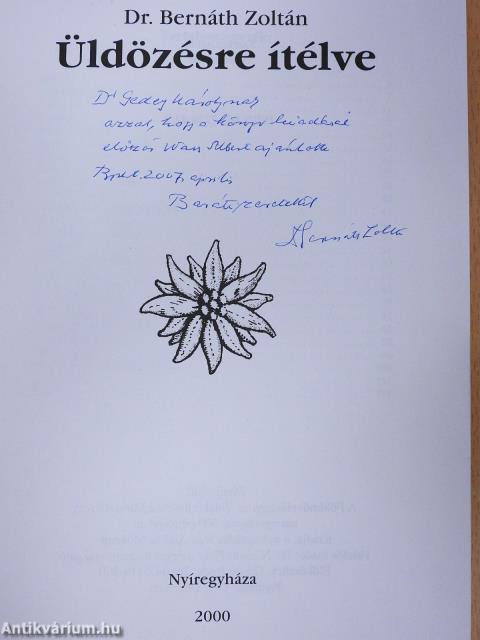 Dr. Bernáth Zoltán
Üldözésre ítélve
Dr Gedey Károlynak
azzal, hogy a könyv kiadását
először Wass Albert ajánlotta
Bpest. 2007. április
Baráti szeretettel
Dr Bernáth Zoltán
Nyíregyháza
2000
Antikvárium.hu